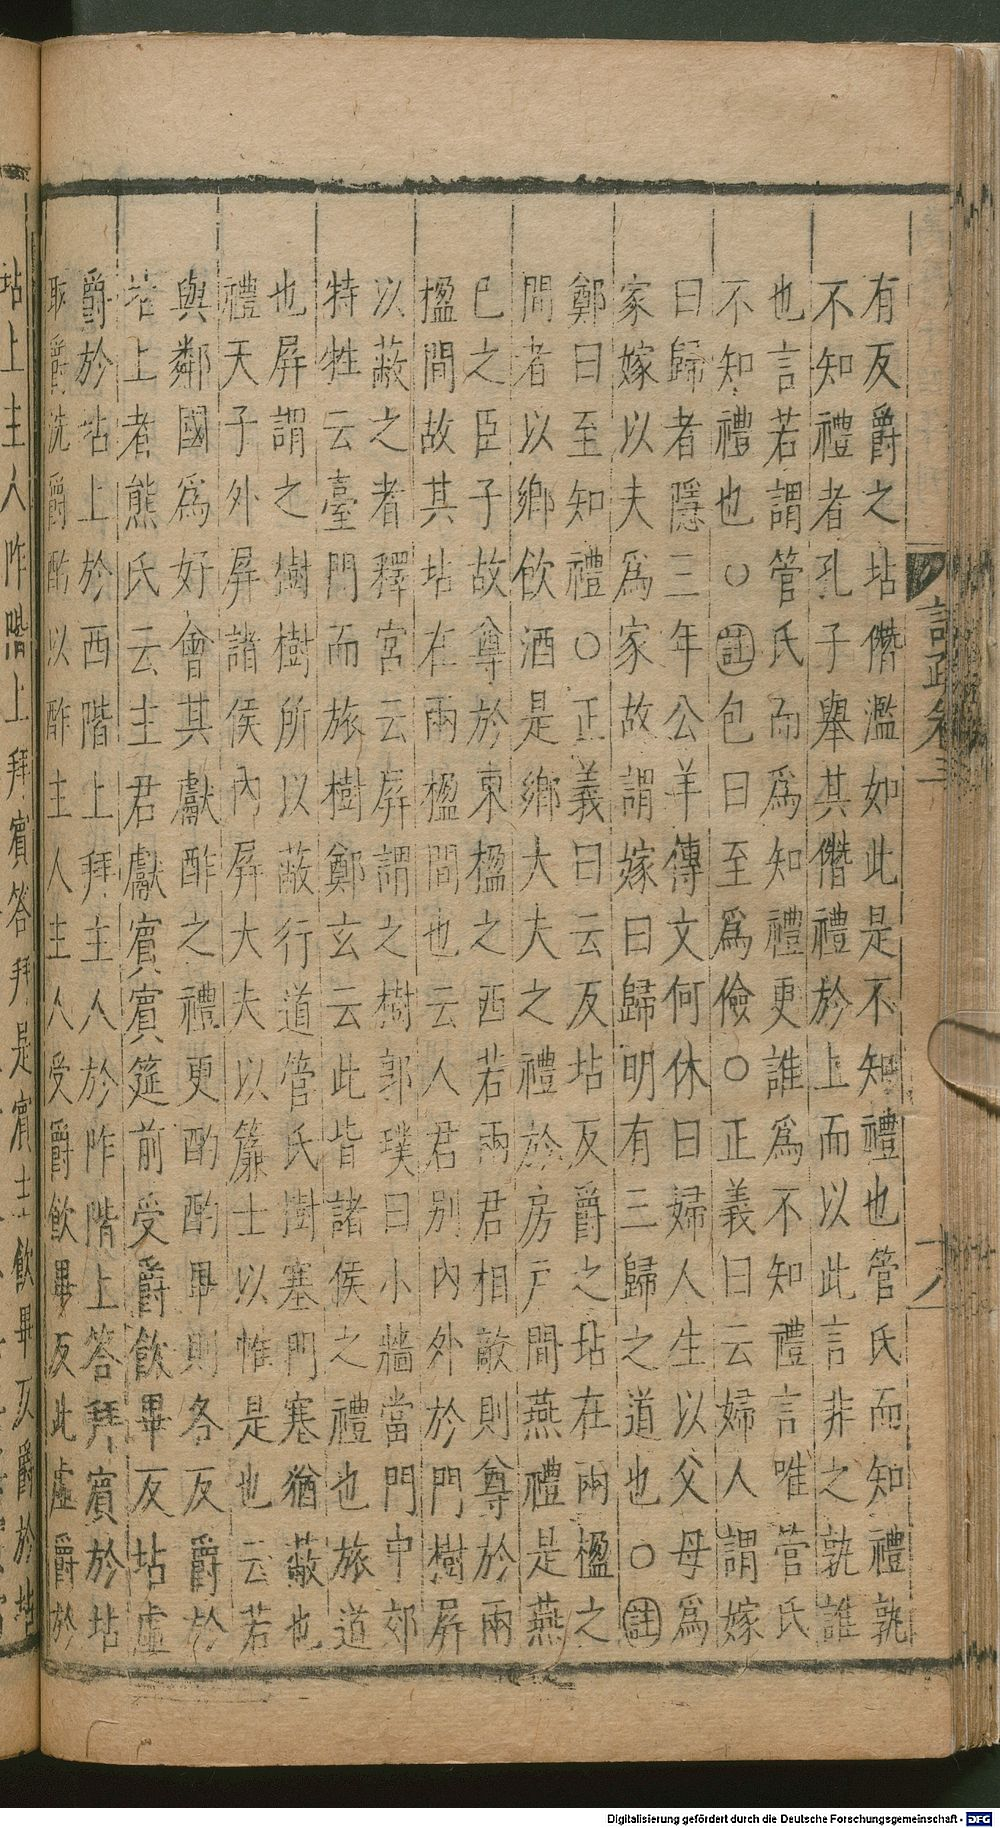 有反爵之坫僭濫如此是不知禮也管氏而知禮孰
不知禮者孔子舉其僭禮於上而以此言非之孰誰
也言若謂管氏而爲知禮更誰爲不知禮言唯管氏
不知禮也○註包曰至爲儉○正義曰云婦人謂嫁
曰歸者隱三年公羊傳文何休曰婦人生以父母爲
家嫁以夫爲家故謂嫁曰歸明有三歸之道也○註
鄭曰至知禮○正義曰云反坫反爵之坫在兩楹之
間者以鄉飲酒是鄉大夫之禮於房戶間燕禮是燕
已之臣子故尊於東楹之西若兩君相敵則尊於兩
楹間故其坫在兩楹間也云人君別內外於門樹屏
以蔽之者釋宮云屏謂之樹郭璞曰小牆當門中郊
特牲云臺門而旅樹鄭玄云此皆諸侯之禮也旅道
也屏謂之樹樹所以蔽行道管氏樹塞門塞猶蔽也
禮天子外屏諸侯內屏大夫以簾士以帷是也云若
與鄰國爲好會其獻酢之禮更酌酌畢則各反爵於
坫上者熊氏云主君獻賓賓筵前受爵飲畢反坫虛
爵於坫上於西階上拜主人於阼階上答拜賓於坫
取爵洗爵酌以酢主人主人受爵飲畢反此虛爵於
坫上主人阼階上拜賓答拜是賓主飲畢反爵於坫
註疏卷三
十八
Digitalisierung gefördert durch die Deutsche Forschungsgemeinschaft - DFG